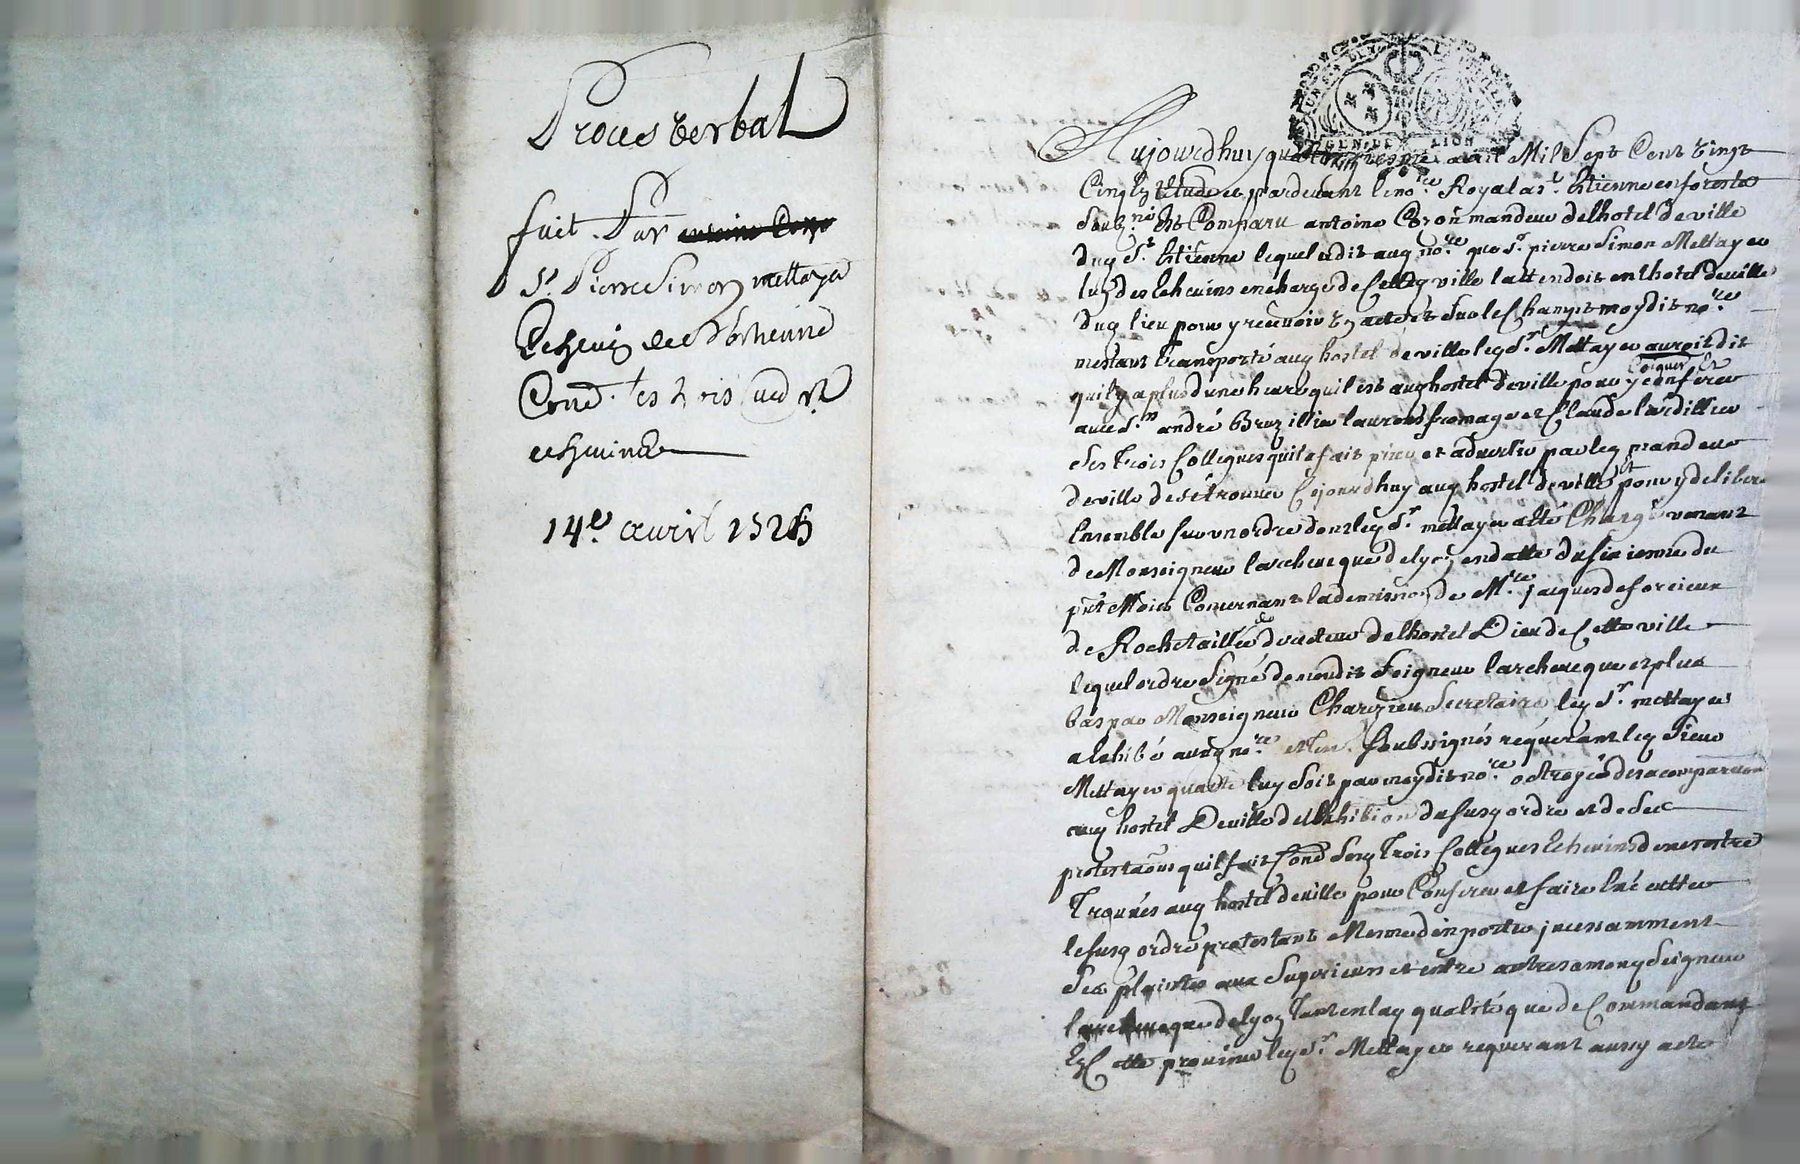 Proces verbal
fait Par
Sr. Pierre Simon mettayer
Eschevin de St Estienne
Cond. les trois aud.
eschevins
14e. avril 1725
GEN. DE LION
Aujourdhuy quatorziesme avril Mil Sept Cent vingt
Cinq Estude et pardevant le nore. Royal a St. Etienne en forests
Soubné. Est Comparu antoine mandeur de lhotel de ville
dud St. Etienne lequel a dit aud nore. que Sr. pierre Simon Mettayer
lun des Echevins en charge de Cetted ville lattendoit en lhotel de ville
dud lieu pour y recevoir un acte et Sur le Champ moydit nore.
mestant transporté aud hostel de ville led Sr. Mettayer auroit dit
quil y a plus dune heure quil est aud hostel de ville pour y conferer
avec Srs. andré Bruzillier laurend fromage et Claude lardillier
Ses trois Collegues quil a fait prier et advertir par led mandeur
de ville de se trouver Cejourdhuy aud hostel de ville et pour y deliberer
Ensemble sur un ordre dont led Sr. mettayer a été Chargé venant
de Monseigneur larcheveque de lyon en datte du sixiesme du
pnt Mois Concernant la demission de Mre. jacques de forcieux
de Rochetaillée docteur de lhostel Dieu de Cette ville
lequel ordre Signé de mondit Seigneur larcheveque et plus
bas par Monseigneur Charezieu Secretaire led Sr. mettayer
a Exhibé aud nore. et Soubssignés requerant led Sieur
Mettayer quacte luy Soit par moydit nore. octroyé de sa comparution
aud hostel De ville de lExhibition du susd ordre et de Ses
protestaons quil fait Cond Sesd Trois Collegues Echevins de ne sestre
Trouvés aud hostel de ville pour Conferer et faire Executter
le susd ordre protestant Mesme den porter jncessamment
Ses plaintes aux Superieurs et entre autres a mond Seigneur
larcheveque de lyon Tant en lad qualité que de Commandant
En Cette province led Sr. Mettayer requerant aussy acte